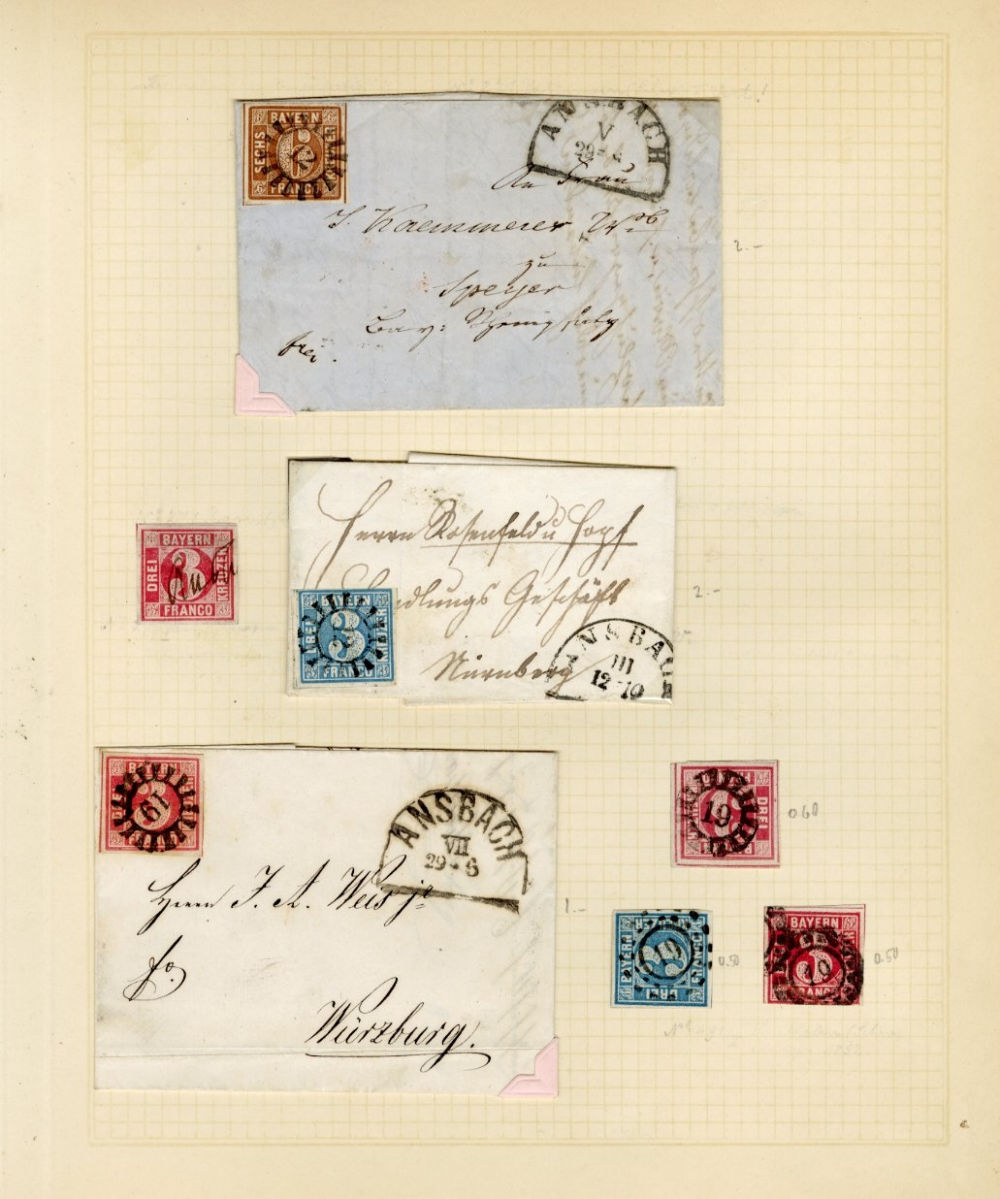 BAYERN
SECHS
FRANCO
12
ANSBACH
V
29
An Frau
J. Kaemmerer Wb
zu
Speyer
frei.
2.-
BAYERN
DREI
3
KREUZER
FRANCO
Herrn Rosenfeld u Hopf
Handlungs Geschäft
Nürnberg
BAYERN
3
FRANCO
ANSBACH
III
12 10
2.-
BAYERN
19
ANSBACH
VII
29 6
Herrn J. A. Weis jr
fo
Würzburg.
1.-
DREI
19
0.60
BAYERN
DREI
19
0.50
BAYERN
3
FRANCO
19
0.50